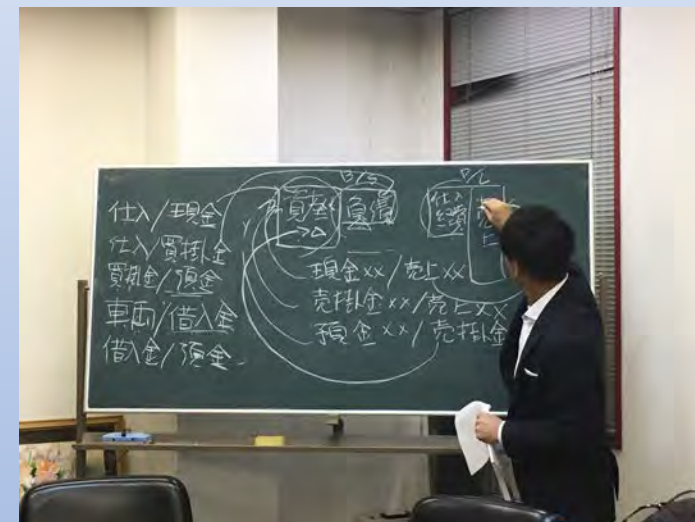 仕入/現金
仕入/買掛金
買掛金/預金
車両/借入金
借入金/預金
B/S
資産 負債
P/L
仕入
経費
売上
現金xx/売上xx
売掛金xx/売上xx
預金xx/売掛金